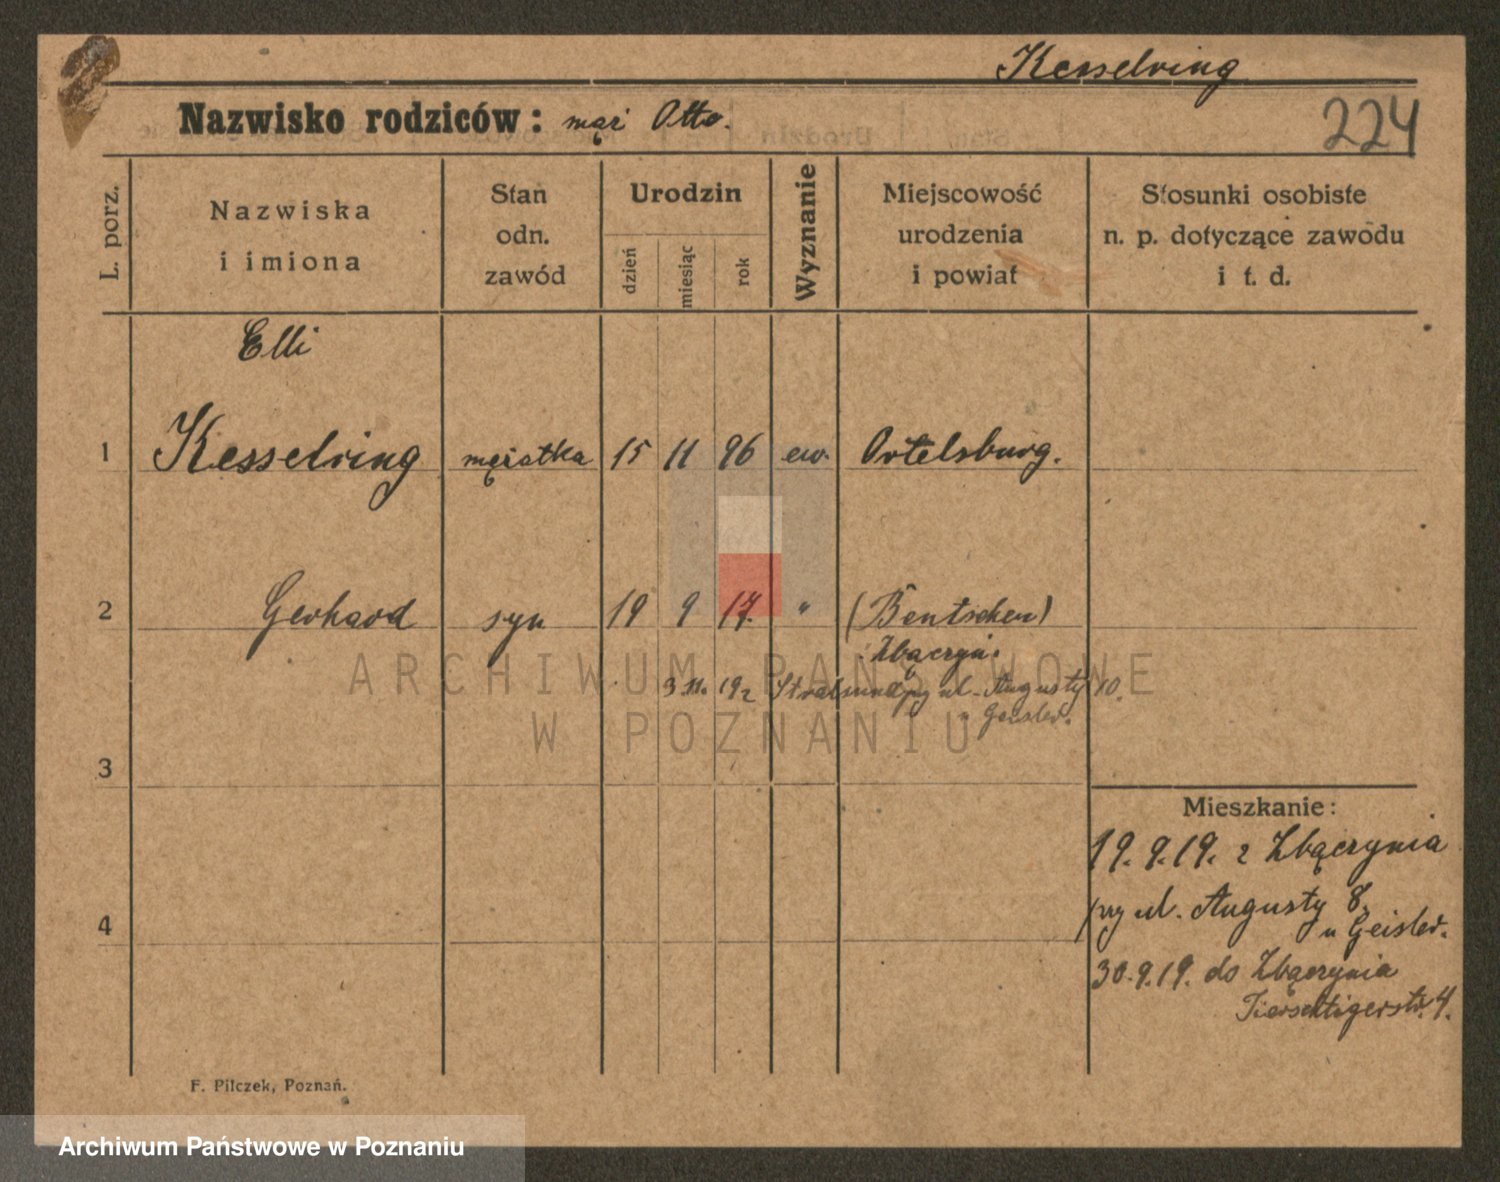 Kesselring
Nazwisko rodziców: mąż Otto.
224
L. porz.
Nazwiska
i imiona
Stan
odn.
zawód
Urodzin
dzień
miesiąc
rok
Wyznanie
Miejscowość
urodzenia
i powiat
Stosunki osobiste
n. p. dotyczące zawodu
i t. d.
Elli
1 Kesselring mężatka 15 11 96 ew. Ortelsburg.
2 Gerhard syn 19 9 17. " (Bentschen)
Zbączyń.
3 11. 19 z Stralsund pry ul. Augusty 10.
u Geisler.
ARCHIWUM PAŃSTWOWE
W POZNANIU
3
Mieszkanie:
19.9.19. z Zbączynia
pry ul. Augusty 8.
u Geisler.
4
30.9.19. do Zbączynia
4.
F. Pilczek, Poznań.
Archiwum Państwowe w Poznaniu